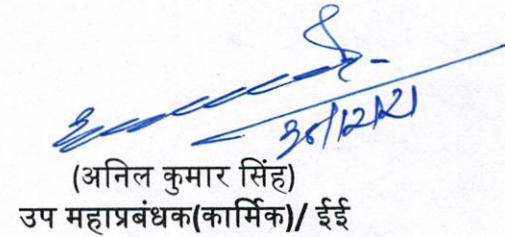 30/12/21
(अनिल कुमार सिंह)
उप महाप्रबंधक(कार्मिक)/ ईई